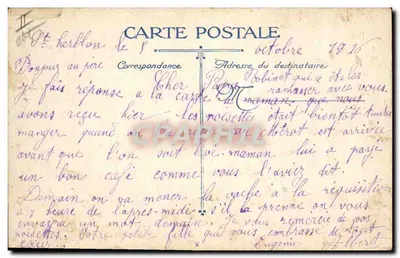 St herblon le 8 octobre 1916
CARTE POSTALE
Correspondance Adresse du destinataire
Bonjour au père Robinet qui a été les
Cher Papa ramasser avec vous.
je fais réponse à la carte à maman, que nous
avons reçu hier les noisette était bientôt toutes
manger quand on est arrivée
avant que l'on soit maman lui a payé
un bon café comme vous l'aviez dit.
Demain on va mener la vache à la réquisition
a 7 heure de l'apres-midi s'il la prenne on vous
envarra un mot demain. Je vous remercie de vos
noisettes. Votre petite fille qui vous embrasse de tout
cœur. Eugénie Albert